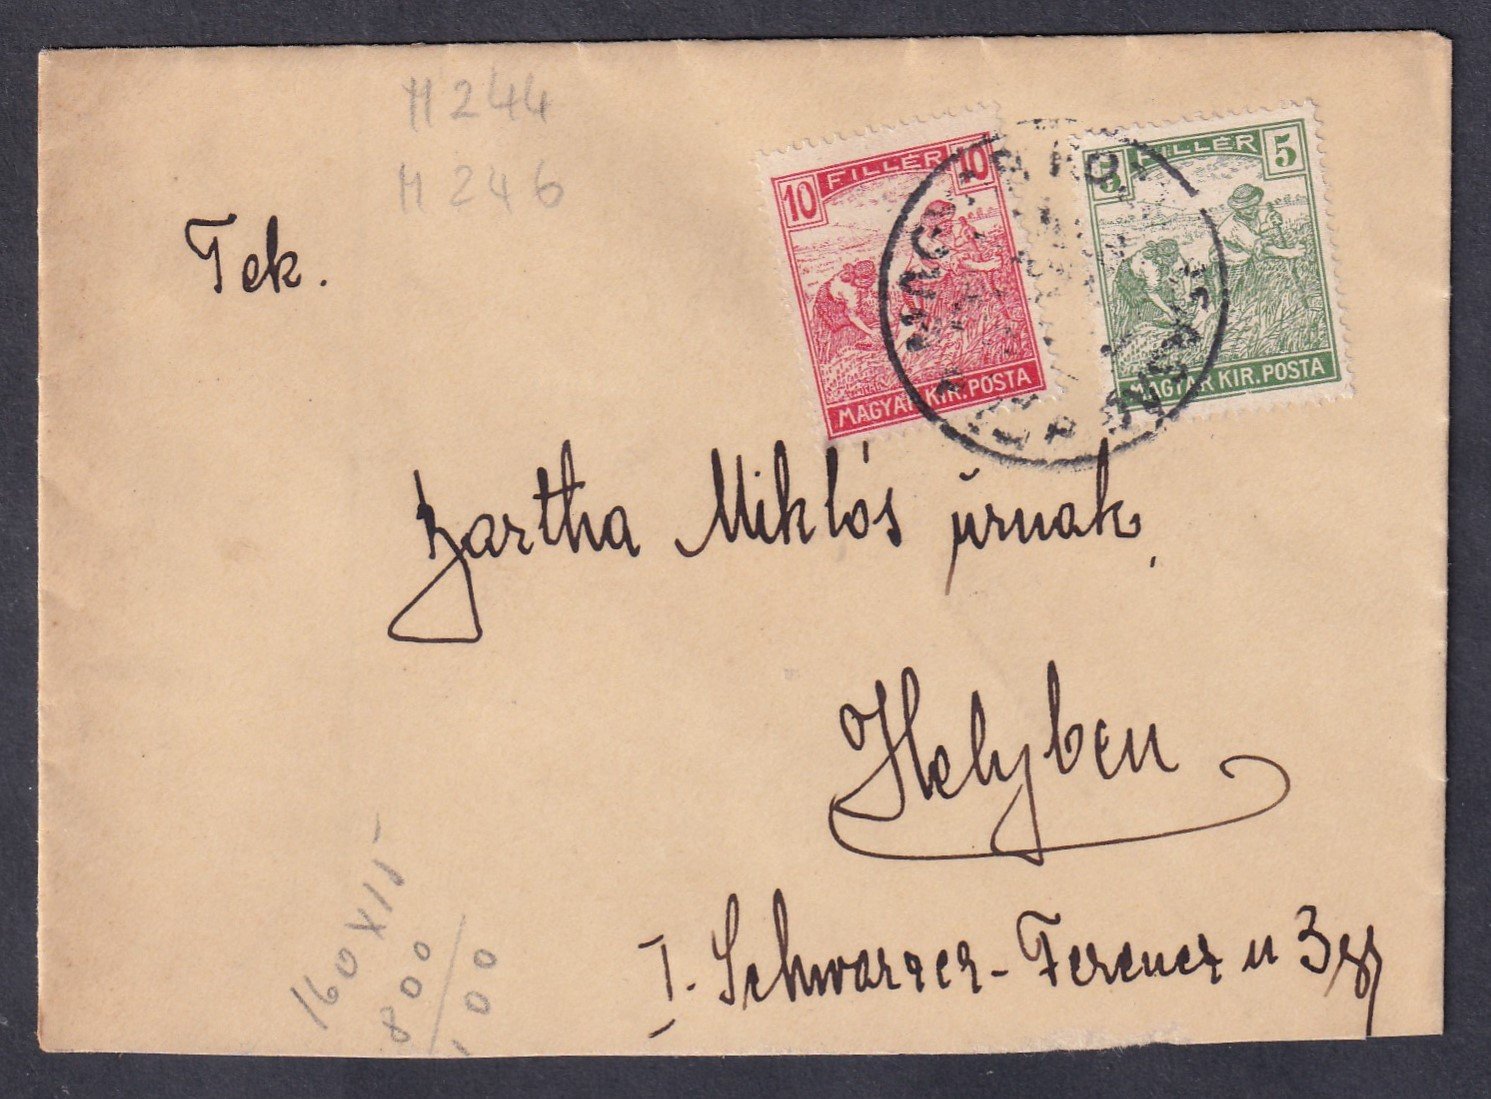 M 244
M 246
10 FILLÉR 10
MAGYAR KIR. POSTA
5 FILLÉR 5
MAGYAR KIR. POSTA
Tek.
Bartha Miklós úrnak
Helyben
I. Schwarzer-Ferencz u 3 sz
160 x 15
800